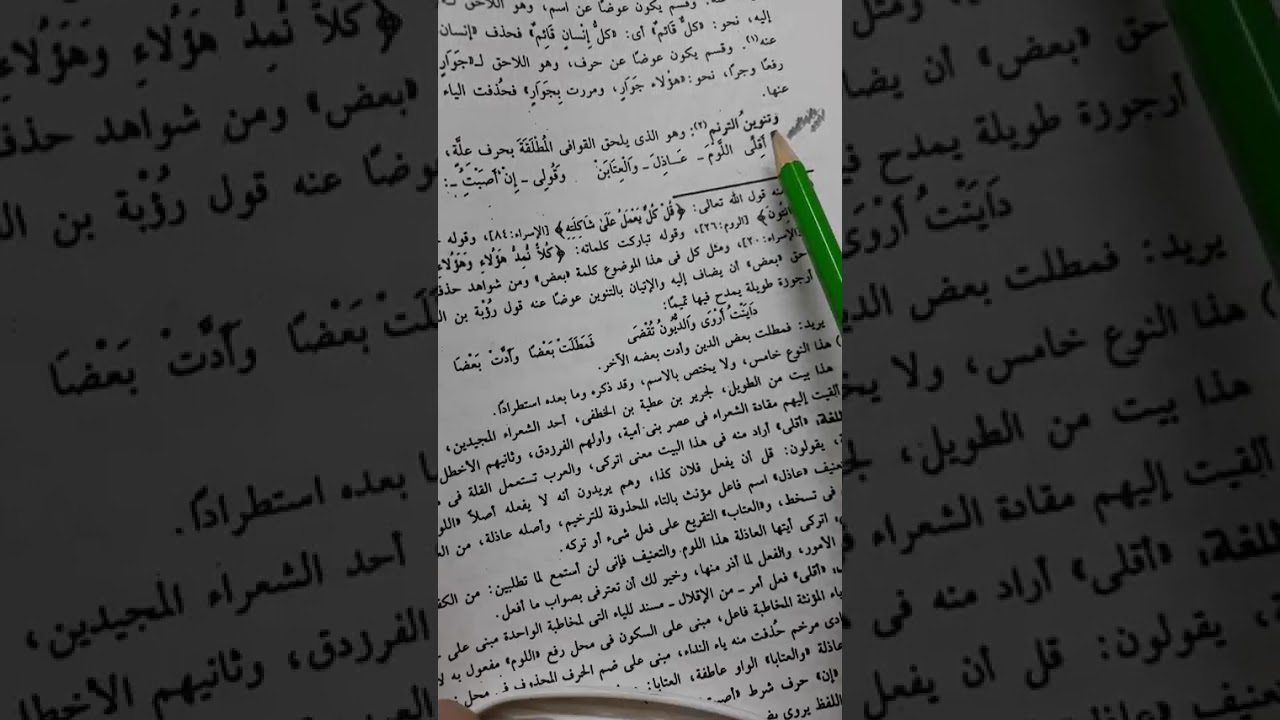 وقسم يكون عوضًا عن اسم، وهو اللاحق لـ
إليه، نحو: «كلٌّ قائم» أى: «كلُّ إنسانٍ قائِمٌ» فحذف «إنسان
عنه(١). وقسم يكون عوضًا عن حرف، وهو اللاحق لـ«جَوَارٍ
رفعًا وجرا، نحو: «هؤلاء جَوَارٍ، ومررت بِجَوَارٍ» فحُذفت الياء
عنها.
وتنوينُ الترنمِ(٢): وهو الذى يلحق القوافى الْمُطْلَقَةَ بحرف علَّة،
أَقِلِّى اللَّوْمَ ـ عَـاذِلَ ـ وَالْعِتَابَنْ وَقُولِى ـ إِنْ أَصَبْتُ ـ:
قول الله تعالى: ﴿قُلْ كُلٌّ يَعْمَلُ عَلَىٰ شَاكِلَتِهِ﴾ [الإسراء: ٨٤]، وقوله
[الروم: ٢٦]، وقوله تباركت كلماته: ﴿كُلاًّ نُمِدُّ هَؤُلاءِ وَهَؤُلاءِ
[الإسراء: ٢٠]، ومثل كل فى هذا الموضوع كلمة «بعض» ومن شواهد حذف
حق «بعض» أن يضاف إليه والإتيان بالتنوين عوضًا عنه قول رُؤْبة بن
أرجوزة طويلة يمدح فيها تميمًا:
دَايَنْتُ أَرْوَى وَالدُّيُونُ تُقْضَى فَمَطَلَتْ بَعْضًا وَأَدَّتْ بَعْضَا
يريد: فمطلت بعض الدين وأدت بعضه الآخر.
هذا النوع خامس، ولا يختص بالاسم، وقد ذكره وما بعده استطرادًا.
هذا بيت من الطويل، لجرير بن عطية بن الخطفى، أحد الشعراء المجيدين،
ألقيت إليهم مقادة الشعراء فى عصر بنى أمية، وأولهم الفرزدق، وثانيهم الأخطل
«أقلى» أراد منه فى هذا البيت معنى اتركى، والعرب تستعمل القلة فى
يقولون: قل أن يفعل فلان كذا، وهم يريدون أنه لا يفعله أصلاً
«عاذل» اسم فاعل مؤنث بالتاء المحذوفة للترخيم، وأصله عاذلة، من
فى تسخط، و«العتاب» التقريع على فعل شىء أو تركه.
اتركى أيتها العاذلة هذا اللوم والتعنيف فإنى لن أستمع لما تطلبين: من
الأمور، والفعل لما أذر منها، وخير لك أن تعترفى بصواب ما أفعل.
«أقلى» فعل أمر ـ من الإقلال ـ مسند للياء التى لمخاطبة الواحدة مبنى على
المؤنثة المخاطبة فاعل، مبنى على السكون فى محل رفع «اللوم» مفعول به
مرخم حُذفت منه ياء النداء، مبنى على ضم الحرف المحذوف فى محل
عاذلة «والعتابا» الواو عاطفة، العتابا:
«إن» حرف شرط